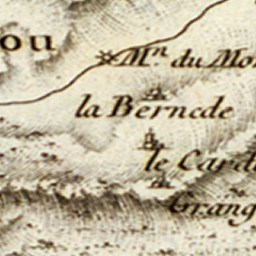 ou
Mⁿ du Mo
la Bernede
le Card
Grang